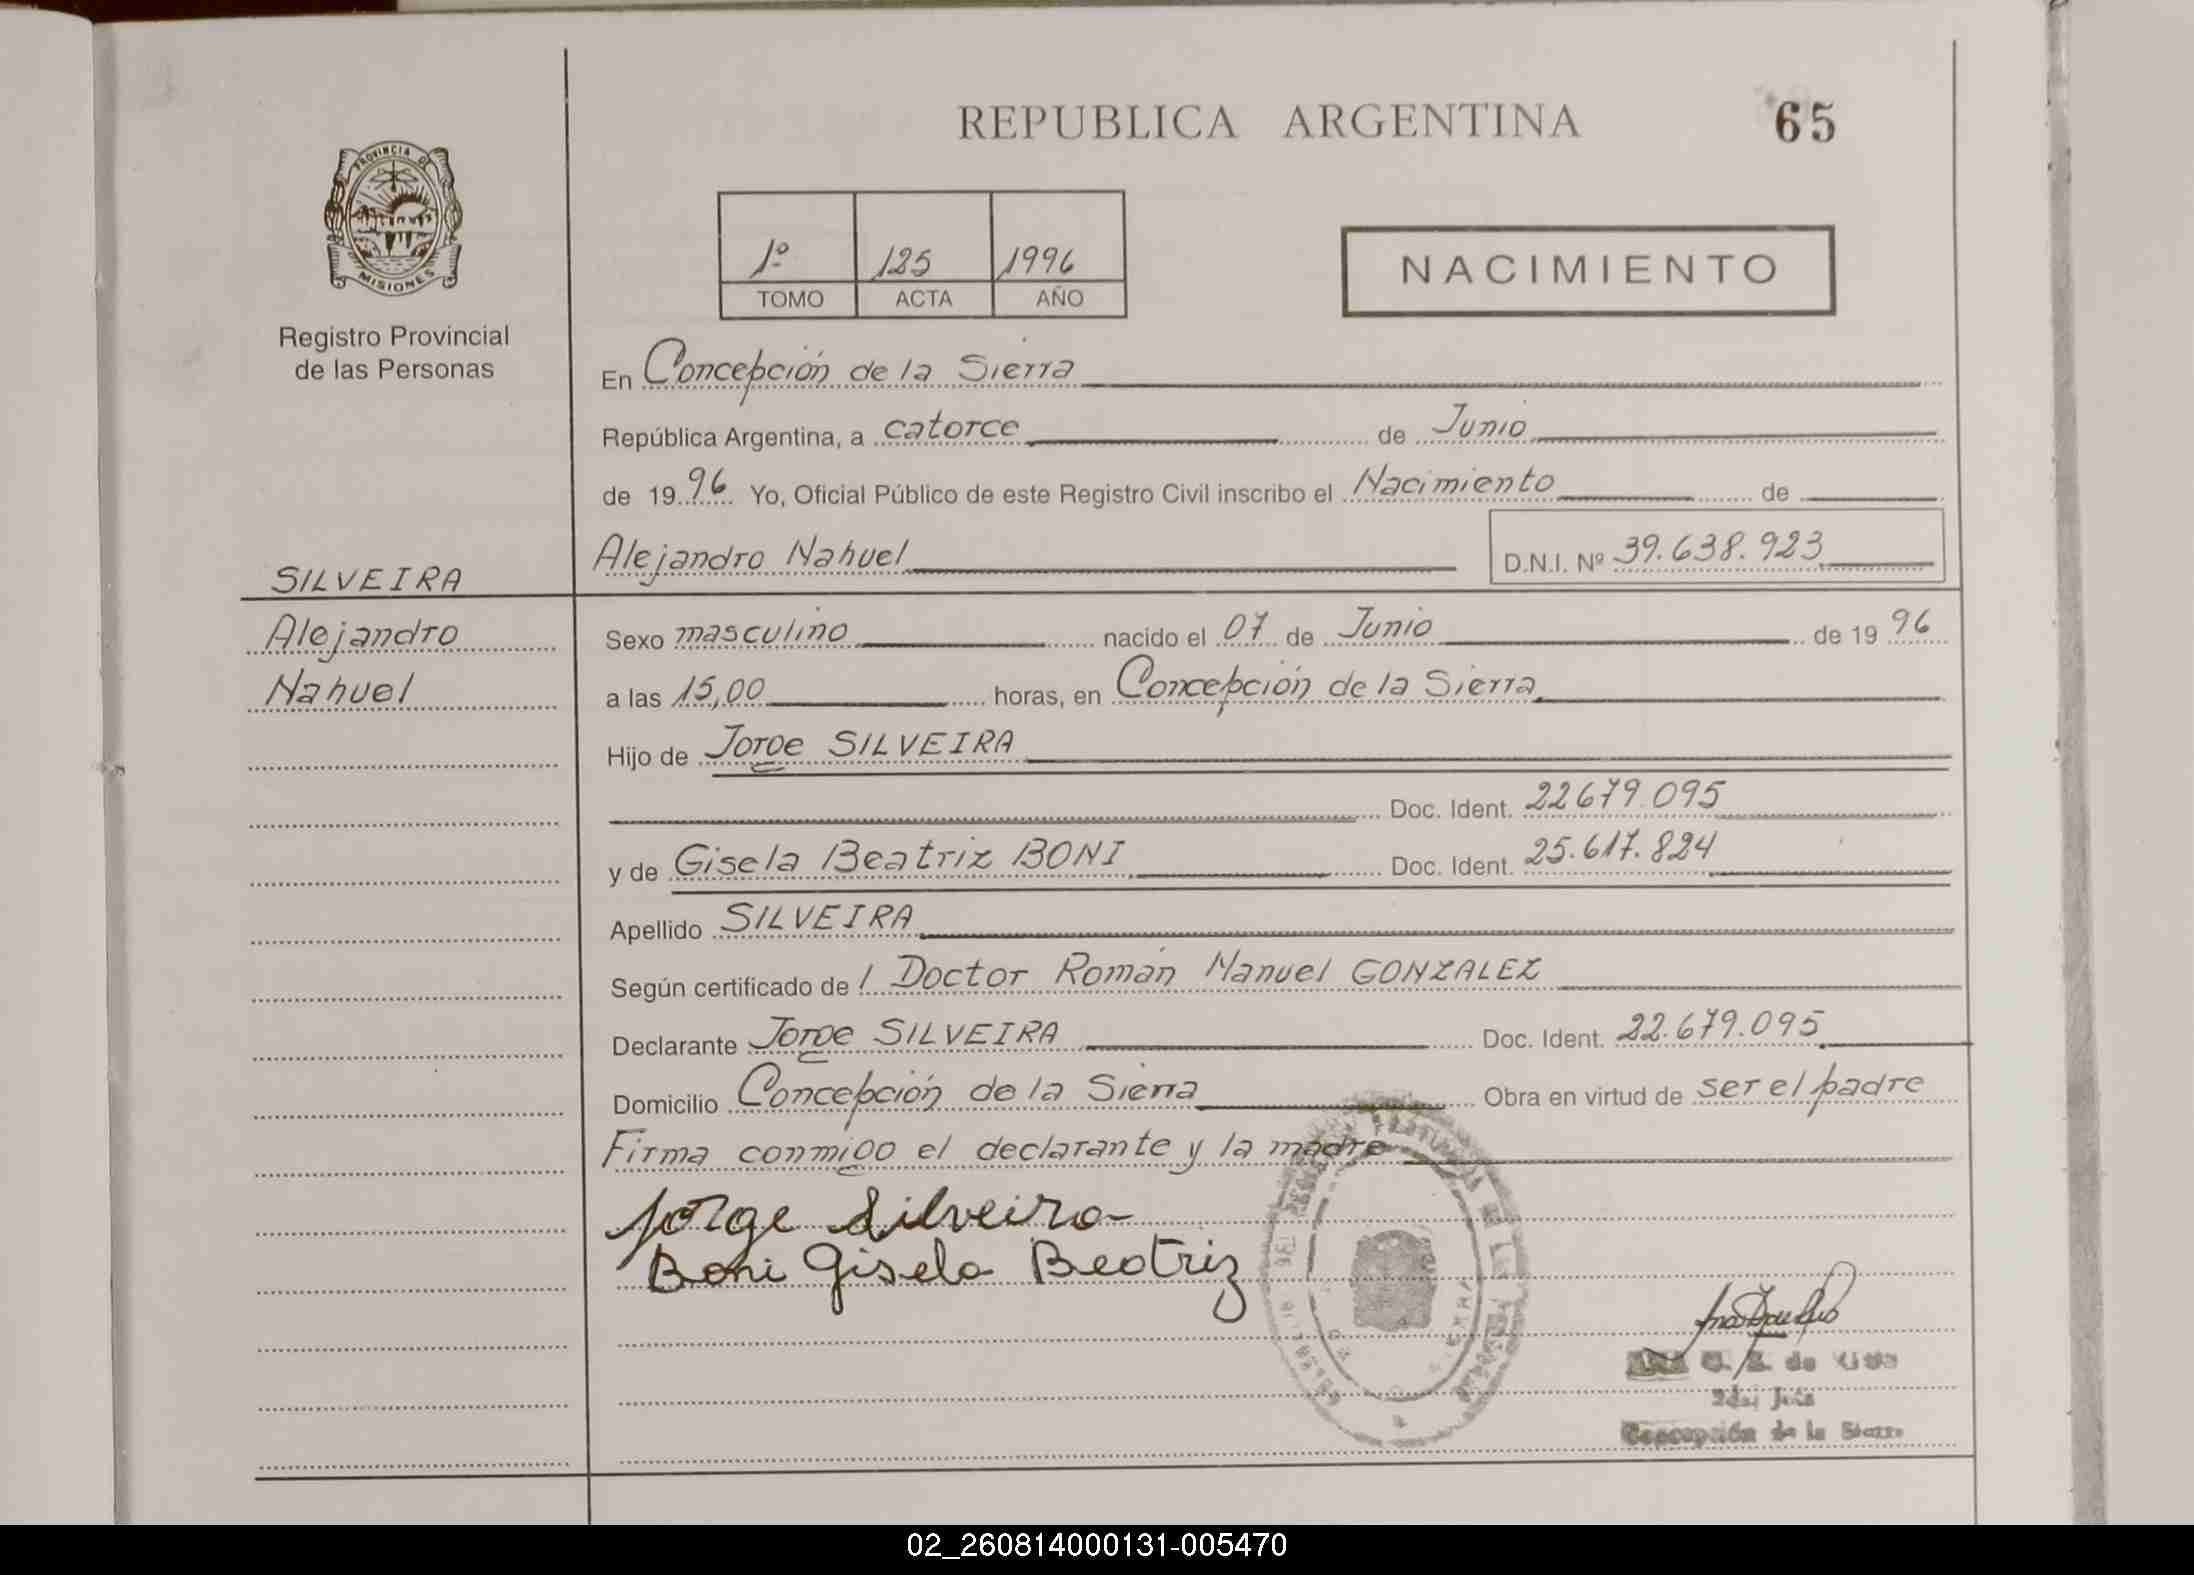 REPUBLICA ARGENTINA
65
PROVINCIA DE
MISIONES
Registro Provincial
de las Personas
1º 125 1996
TOMO ACTA AÑO
NACIMIENTO
En Concepción de la Sierra
República Argentina, a catorce de Junio
de 1996 Yo, Oficial Público de este Registro Civil inscribo el Nacimiento de
Alejandro Nahuel D.N.I. Nº 39.638.923
SILVEIRA
Alejandro
Nahuel
Sexo masculino nacido el 07 de Junio de 1996
a las 15,00 horas, en Concepción de la Sierra
Hijo de Jorge SILVEIRA
Doc. Ident. 22679.095
y de Gisela Beatriz BONI Doc. Ident. 25.617.824
Apellido SILVEIRA
Según certificado de l Doctor Román Manuel GONZALEZ
Declarante Jorge SILVEIRA Doc. Ident. 22.679.095
Domicilio Concepción de la Sierra Obra en virtud de ser el padre
Firma conmigo el declarante y la madre
Jorge Silveira
Boni Gisela Beatriz
de
Concepción de la Sierra
02_260814000131-005470